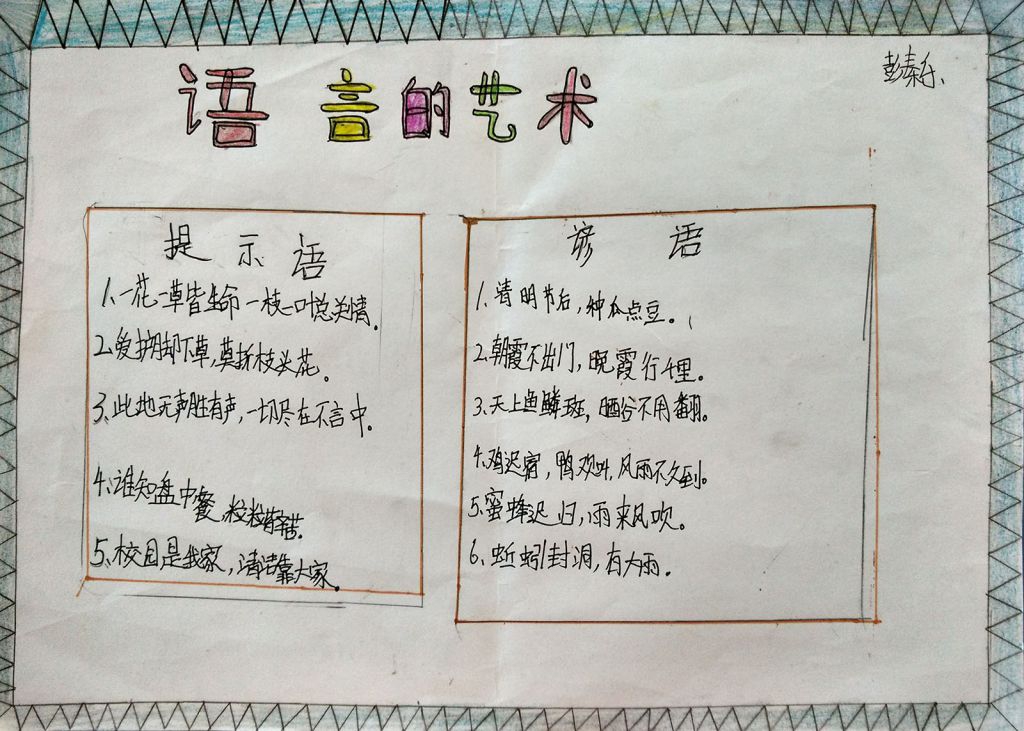 语言的艺术
彭秦乐
提示语
1、一花一草皆生命 一枝一叶总关情。
2、爱护脚下草,莫折枝头花。
3、此地无声胜有声,一切尽在不言中。
4、谁知盘中餐,粒粒皆辛苦。
5、校园是我家,清洁靠大家。
谚语
1、清明节后,种瓜点豆。
2、朝霞不出门,晚霞行千里。
3、天上鱼鳞斑,晒谷不用翻。
4、鸡迟宿,鸭欢叫,风雨不久到。
5、蜜蜂迟归,雨来风吹。
6、蚯蚓封洞,有大雨。